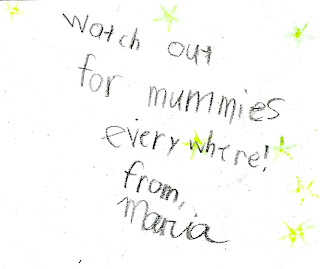 Watch out
for mummies
everywhere!
from,
Maria